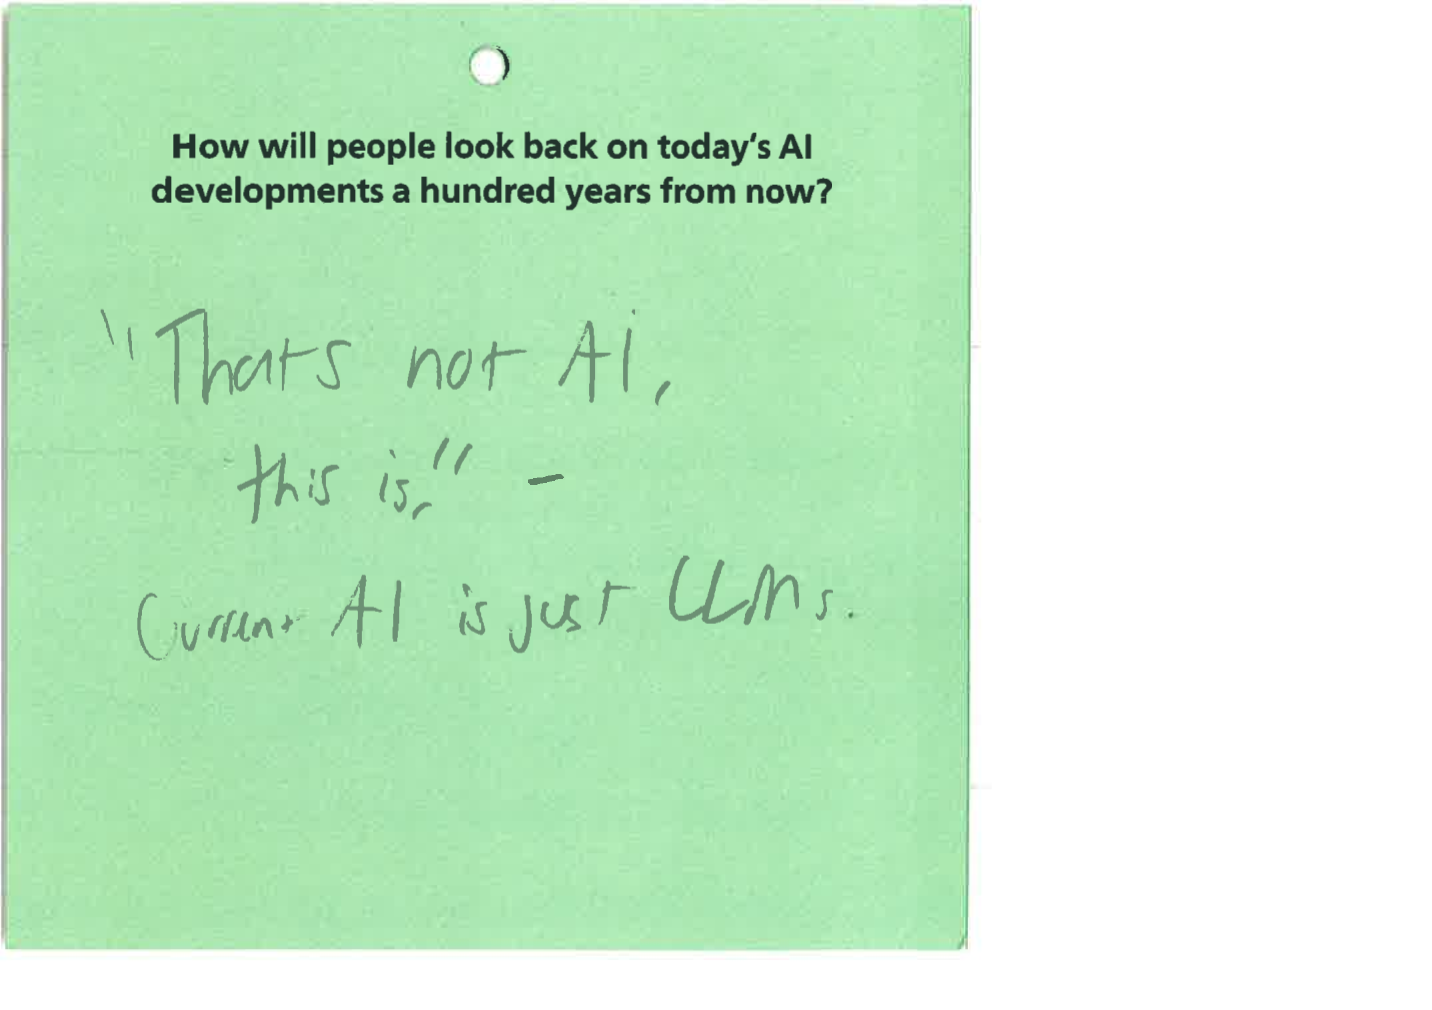 How will people look back on today's AI
developments a hundred years from now?
"Thats not Ai,
this is," –
Current AI is just LLMs.